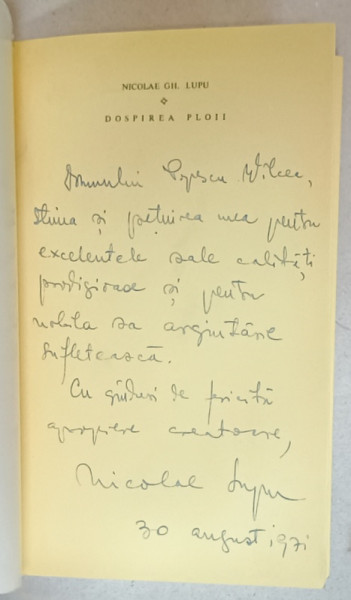 NICOLAE GH. LUPU
DOSPIREA PLOII
Domnului Popescu Vîlcea,
Stima și prețuirea mea pentru
excelentele sale calități
prodigioase și pentru
nobila sa argintărie
sufletească.
Cu gînduri de fericită
apropiere creatoare,
Nicolae Lupu
30 august 1971